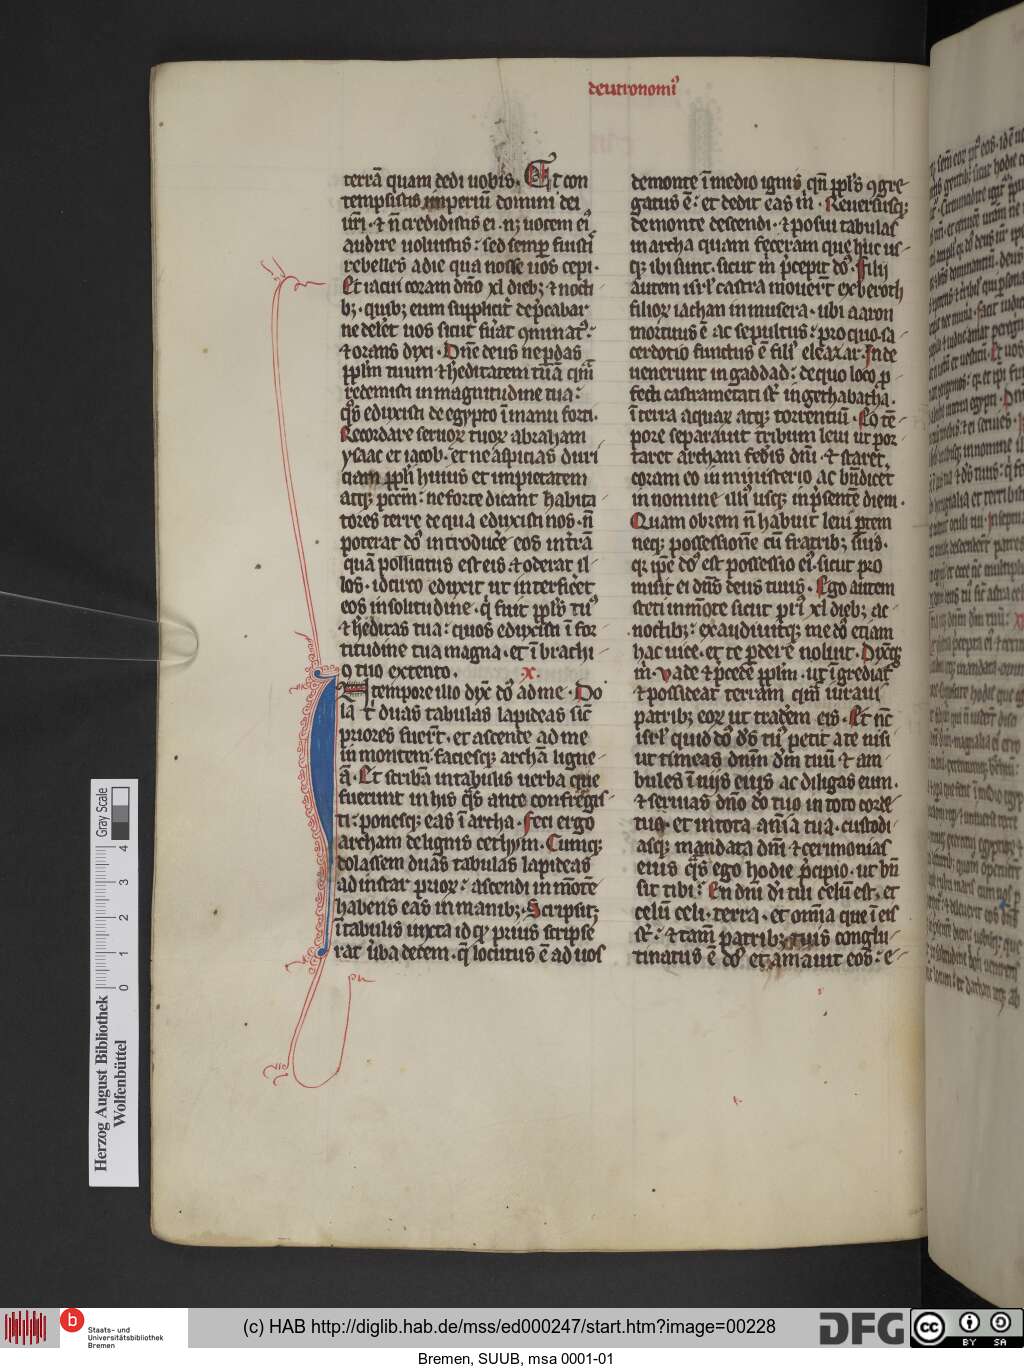 deutronomi᷒
terrā quam dedi uobis. Et con
tempsistis imperiū domini dei
ur̄i. ⁊ n̄ credidistis ei. nꝫ uocem ei᷒
audire uoluistis: sed semꝑ fuisti
rebelles a die qua nosse uos cepi.
Et iacui coram dn̄o xl diebꝫ ⁊ nocti
bꝫ. quibꝫ eum supplicit᷑ dep̄cabar
ne delet᷑ uos sicut fu᷑at ꝯminat᷒:
⁊ orans dixi. Dn̄e deus ne perdas
pplm̄ tuum ⁊ h̓editatem tuā quā
redemisti in magnitudine tua:
qͦs eduxisti de egypto ī manu forti.
Recordare seruoꝝ tuoꝝ abraham
ysaac et iacob. et ne aspicias duri
ciam ppl̄i huius et impietatem
atqꝫ pcc̄m: ne forte dicant habita
tores terre de qua eduxisti nos. n̄
poterat dō introduc̓e eos in t̓rā
quā pollicitus est eis ⁊ oderat il
los. idcirco eduxit ut interfic̓et
eos in solitudine. q̓ sunt ppl̄s tu᷒
⁊ h̓editas tua: quos eduxisti ī for
titudine tua magna. et ī brachi
o tuo extento. x.
In tempore illo dix̄ dō ad me. Do
la t̓ duas tabulas lapideas sic̄
priores fuer̄t. et ascende ad me
in montem. faciesqꝫ archā ligne
ā. Et scribā in tabulis uerba que
fuerunt in his qͦs ante confregis
ti: ponesqꝫ eas ī archa. Feci ergo
archam de lignis cethym. Cumqꝫ
dolassem duas tabulas lapideas
ad instar prioꝝ: ascendi in mōtē
habens eas in manibꝫ. Scripsitqꝫ
ī tabulis iuxta id qͦ prius scripse
rat u̓ba decem. q̄ locutus ē ad uos
de monte ī medio ignis qn̄ ppl̄s ꝯgre
gatus ē: et dedit eas m̓. Reuersusqꝫ
de monte descendi. ⁊ posui tabulas
in archa quam feceram que huc us
qꝫ ibi sunt. sicut m̓ p̄cepit dō. Filij
autem isrl̄ castra mouer̄t ex beroth
filioꝝ iachan in musera. ubi aaron
mortuus ē ac sepultus: pro quo sa
cerdotio functus ē fili᷒ eleazar. Inde
uenerunt in gaddad: de quo loco ꝓ
fecti castrametati st̄ in gethabatha.
ī terra aquaꝝ atqꝫ torrentiū. Eo tē
pore separauit tribum leui ut por
taret archam fed̓is dn̄i. ⁊ staret
coram eo in ministerio ac bn̄dicet᷑
in nomine illi᷒ usqꝫ in p̄sentē diem.
Quam obrem n̄ habuit leui ꝑtem
neqꝫ possessionē cū fratribꝫ suis.
qꝛ ip̄e dō est possessio ei᷒. sicut pro
misit ei dn̄s deus tuus. Ego autem
steti in mōte sicut pri᷒ xl diebꝫ ac
noctibꝫ: exaudiuitqꝫ me dō etiam
hac uice. et te perdere noluit. Dixitqꝫ
m̓. Vade ⁊ p̄cede pplm̄. ut īgrediat᷑
⁊ possideat terram quā iuraui
patribꝫ eoꝝ ut trad̓em eis. Et nc̄
isrl̄ quid dō ds̄ tu᷒ petit a te nisi
ut timeas dn̄m dm̄ tuū ⁊ am
bules ī uijs eius ac diligas eum.
⁊ seruias dn̄o dō tuo in toto corde
tuo. et in tota aīa tua. custodi
asqꝫ mandata dn̄i ⁊ cerimonias
eius qͦs ego hodie p̄cipio. ut bn̄
sit tibi: En dn̄i di̓ tui celū est. et
celū celi. terra. et omīa que ī eis
st̄: ⁊ tam̄ patribꝫ tuis conglu
tinatus ē dō et amauit eos: e
Herzog August Bibliothek
Wolfenbüttel
Gray Scale
0 1 2 3 4
b
Staats- und
Universitätsbibliothek
Bremen
(c) HAB http://diglib.hab.de/mss/ed000247/start.htm?image=00228
DFG
cc
BY SA
Bremen, SUUB, msa 0001-01